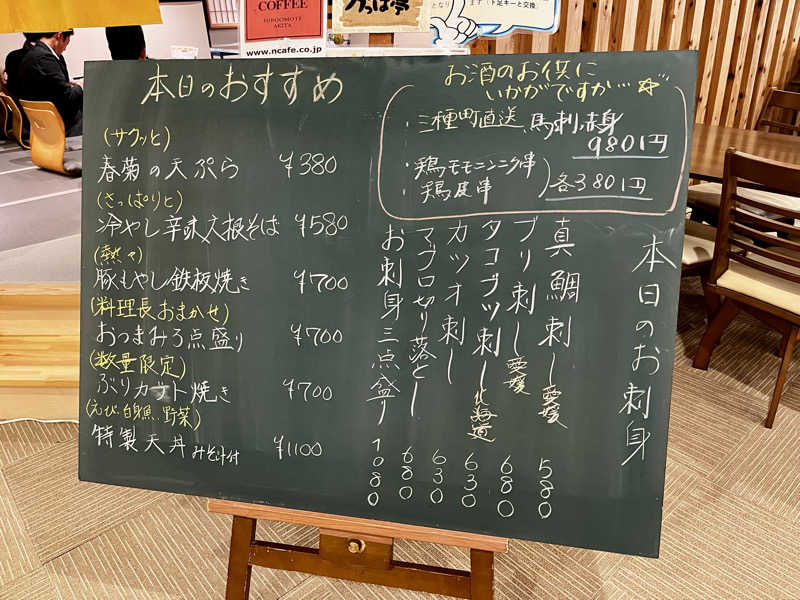 COFFEE
HINOEMOTE
AKITA
www.ncafe.co.jp
かっぱ亭
下足キーと交換
本日のおすすめ
(サクッと)
春菊の天ぷら ¥380
(さっぱりと)
冷やし辛味大根そば ¥580
(熱々)
豚もやし鉄板焼き ¥700
(料理長おまかせ)
おつまみ3点盛り ¥700
(数量限定)
ぶりカブト焼き ¥700
(えび、白身魚、野菜)
特製天丼 みそ汁付 ¥1100
お酒のお供に
いかがですか…☆
・三種町直送、馬刺し赤身
980円
・鶏モモニンニク串
鶏皮串
各380円
本日のお刺身
真鯛刺し 愛媛 580
ブリ刺し 愛媛 680
タコブツ刺し 北海道 630
カツオ刺し 630
マグロ切り落とし 680
お刺身三点盛り 1080